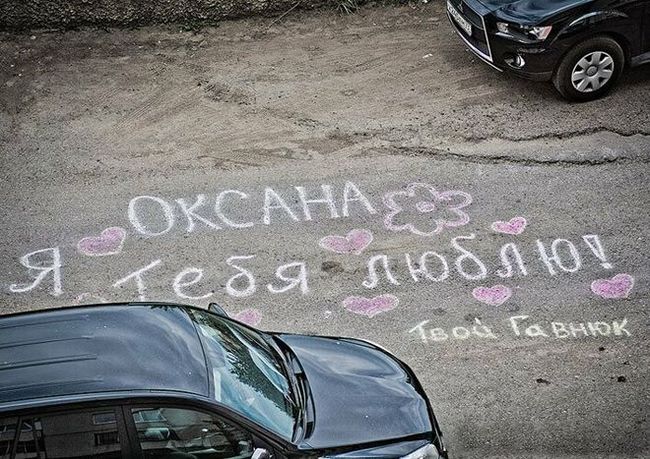 ОКСАНА
Я тебя люблю!
Твой Гавнюк